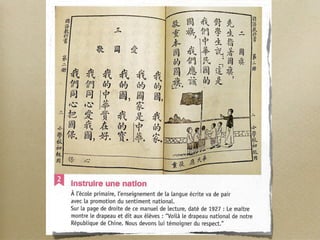 二 國旗
先生指着國旗,
對學生說:「這是
我們中華民國的
國旗,我們應該
敬重本國的國旗。」
三 愛國歌
我的國,我的家,
我的國家是中華。
我的國,我的寶,
我的中華實在好。
我們同心愛我國,
我們同心把國保。
2
Instruire une nation
À l'école primaire, l'enseignement de la langue écrite va de pair
avec la promotion du sentiment national.
Sur la page de droite de ce manuel de lecture, daté de 1927 : Le maître
montre le drapeau et dit aux élèves : "Voilà le drapeau national de notre
République de Chine. Nous devons lui témoigner du respect."